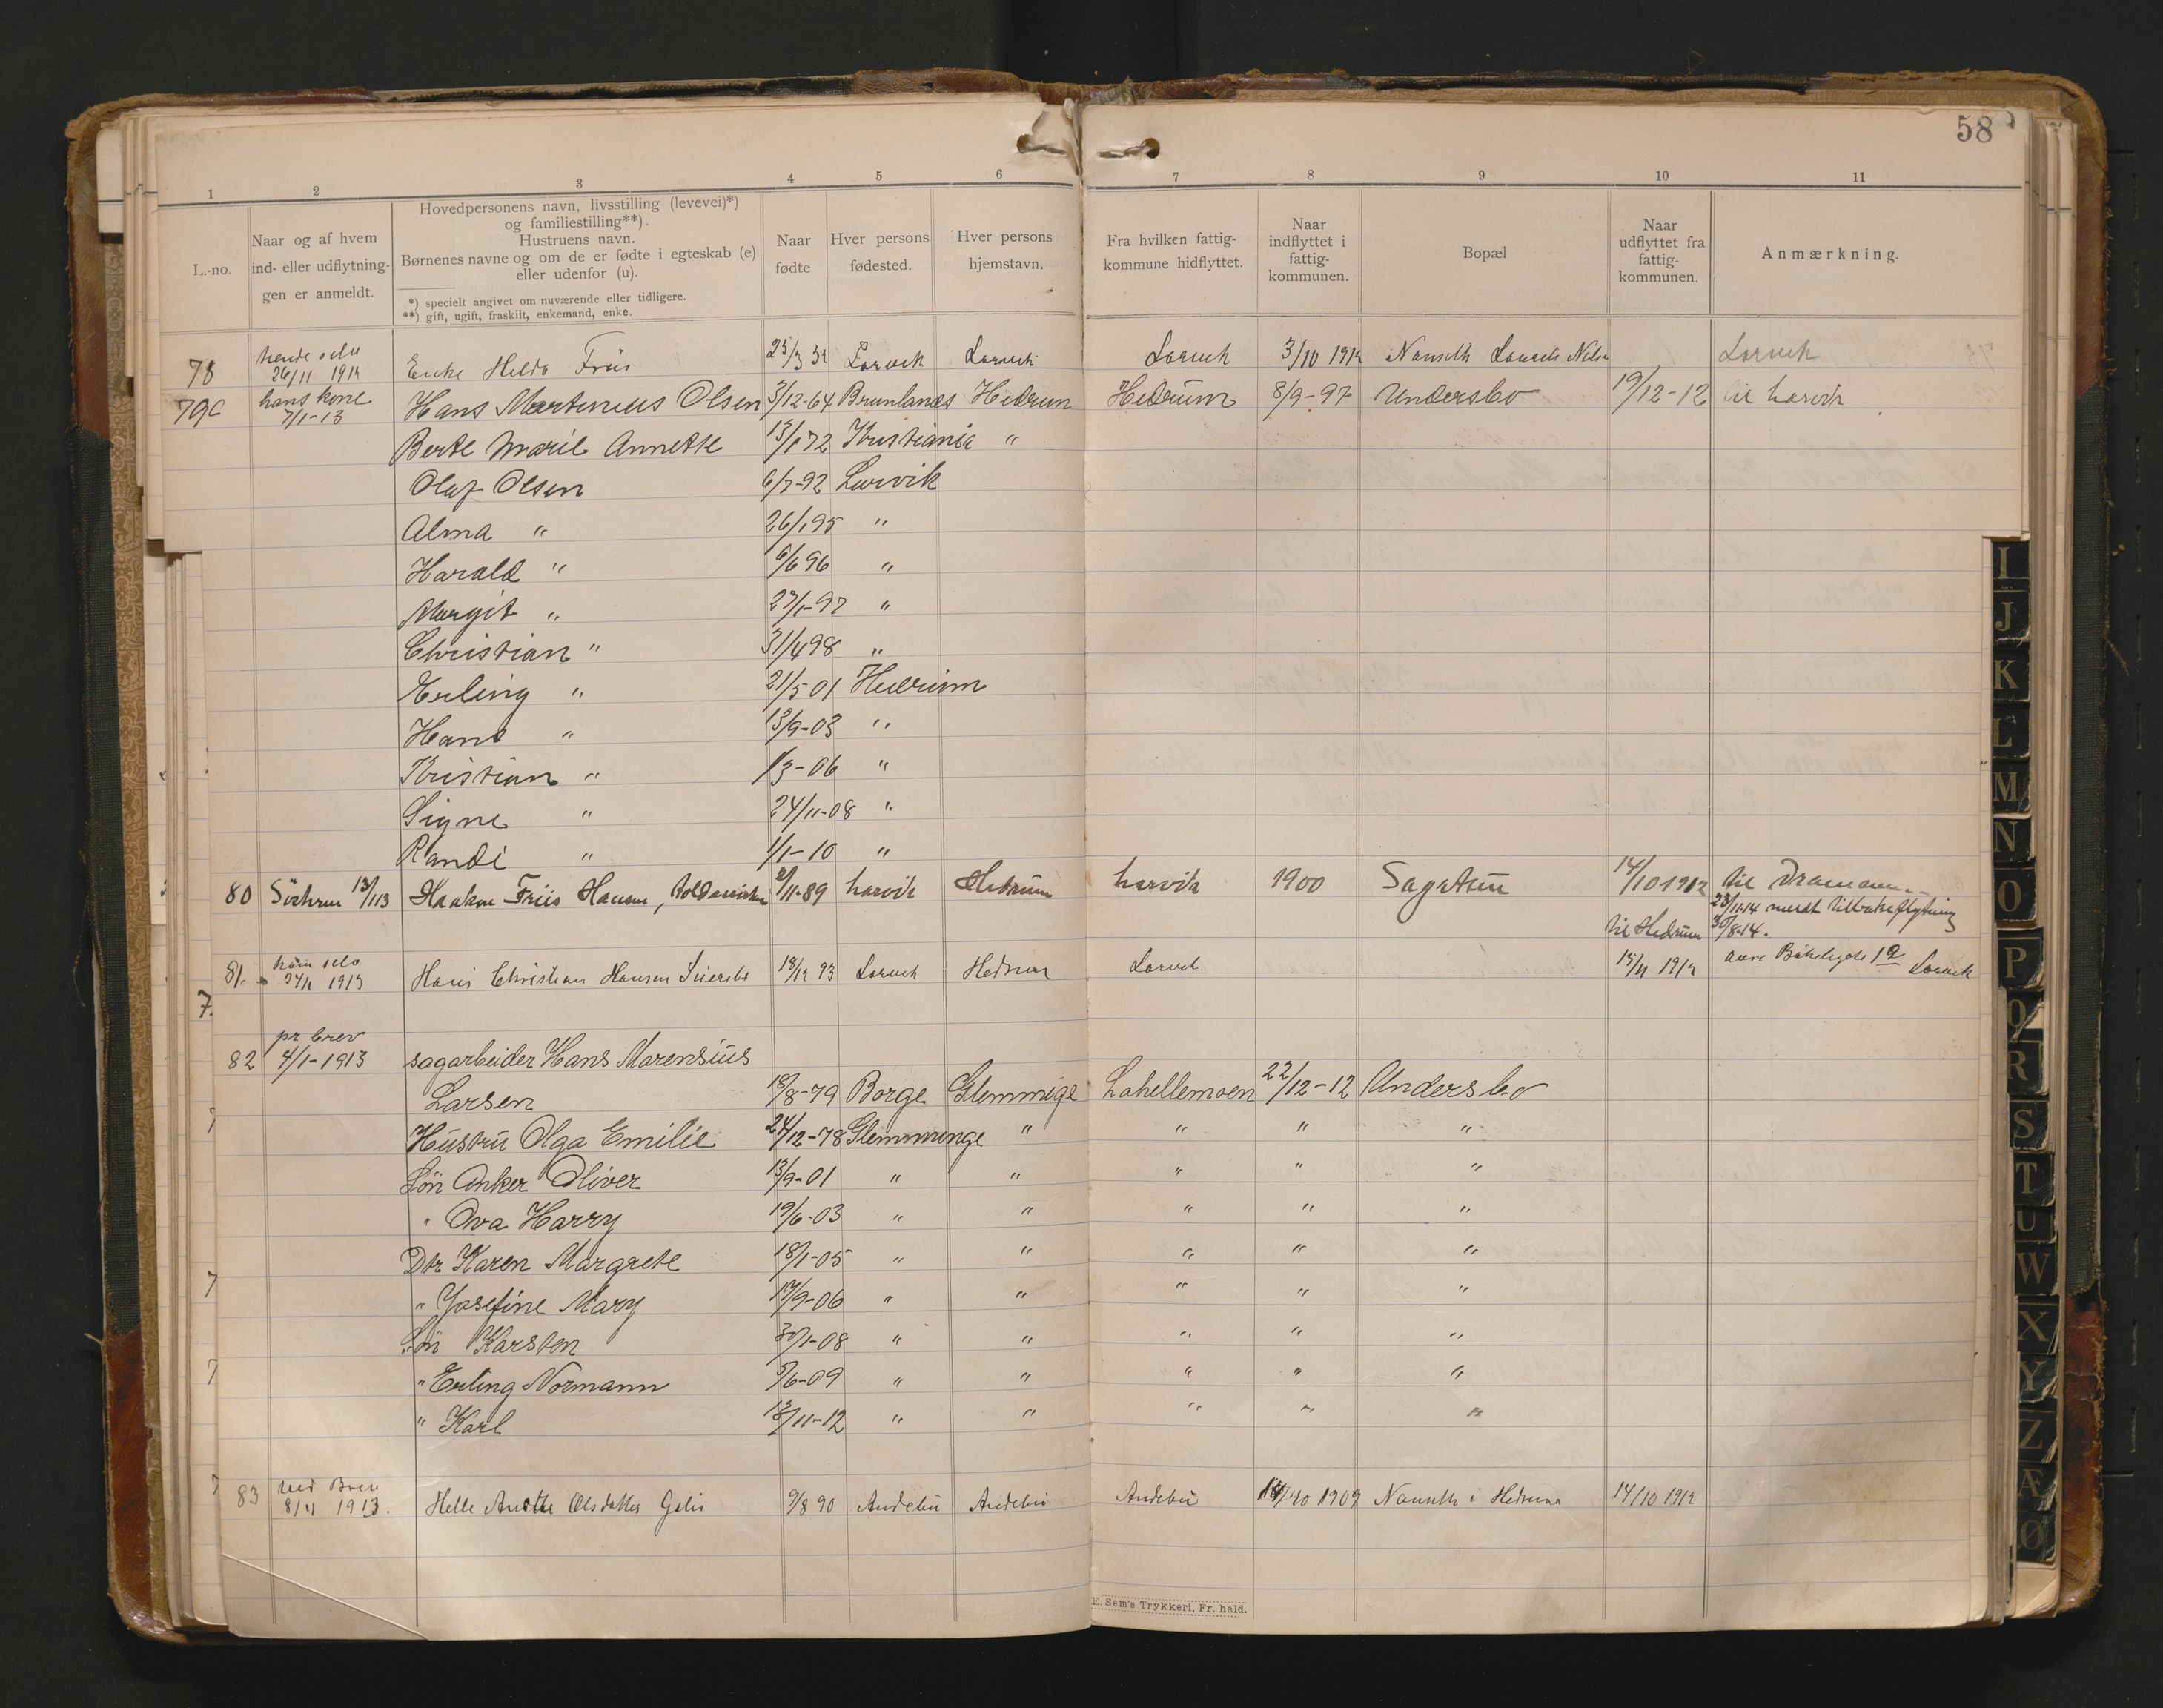 58
1 2 3 4 5 6 7 8 9 10 11
L.-no.
Naar og af hvem
ind- eller udflytnin-
gen er anmeldt.
Hovedpersonens navn, livsstilling (levevei)*)
og familiestilling**).
Hustruens navn.
Børnenes navne og om de er fødte i egteskab (e)
eller udenfor (u).
*) specielt angivet om nuværende eller tidligere.
**) gift, ugift, fraskilt, enkemand, enke.
Naar
fødte
Hver persons
fødested.
Hver persons
hjemstavn.
Fra hvilken fattig-
kommune hidflyttet.
Naar
indflyttet i
fattig-
kommunen.
Bopæl
Naar
udflyttet fra
fattig-
kommunen.
Anmærkning.
78 26/11 1912 Enke Helda Friis Larvik Larvik Larvik 3/10 1912 Nanseth Larvik
hans kone
7/1-13
79 Hans Martinius Olsen 3/12-64 Brunlanes Hedrum Hedrum 8/9-97 Undersbo 19/12-12 til Larvik
Berte Marie Annette 13/1 72 Kristiania "
Olaf Olsen 6/7-92 Larvik
Alma " 26/1 95 "
Harald " 6/6 96 "
Margit " 27/1-97 "
Christian " 31/4 98 "
Erling " 21/5 01 Hedrum
Hans " 13/9-03 "
Kristian " 1/3-06 "
Signe " 24/11-08 "
Randi " 1/1-10 "
80 13/1 13 Haakon Friis Hansen, 2/11-89 Larvik Hedrum Larvik 1900 Sagatun 14/10 1912 til Drammen
23/11-14 meldt tilbakeflytning
til Hedrum 30/8-14.
81 1913 Hans Christian Hansen 18/12 93 Larvik Hedrum Larvik 15/11 1912 Larvik
pr brev
82 4/1-1913 sagarbeider Hans Marensius
Larsen 18/8-79 Borge Glemmige Lahellemoen 22/12-12 Undersbo
Hustru Olga Emilie 24/12-78 Glemminge " " " "
Sön Anker Oliver 13/9-01 " " " " "
" Ova Harry 19/6-03 " " " " "
Dtr Karen Margrete 18/1-05 " " " " "
" Josefine Mary 17/9-06 " " " " "
Sön Karsten 30/1-08 " " " " "
" Erling Normann 5/6-09 " " " " "
" Karl 13/11-12 " " " " "
83 ved Brev
8/4 1913. Helle Olsdatter 9/8 90 Andebu Andebu Andebu 14/10 1909 Nanseth i Hedrum 14/10 1912
E. Sem's Trykkeri, Fr. hald.
I
J
K
L
M
N
O
P
Q
R
S
T
U
W
X
Y
Z
Æ
Ø